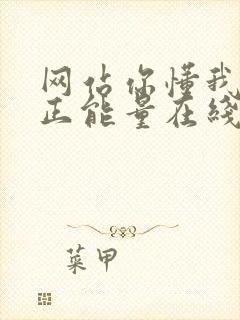 网站你懂我
正能量在线
菜甲